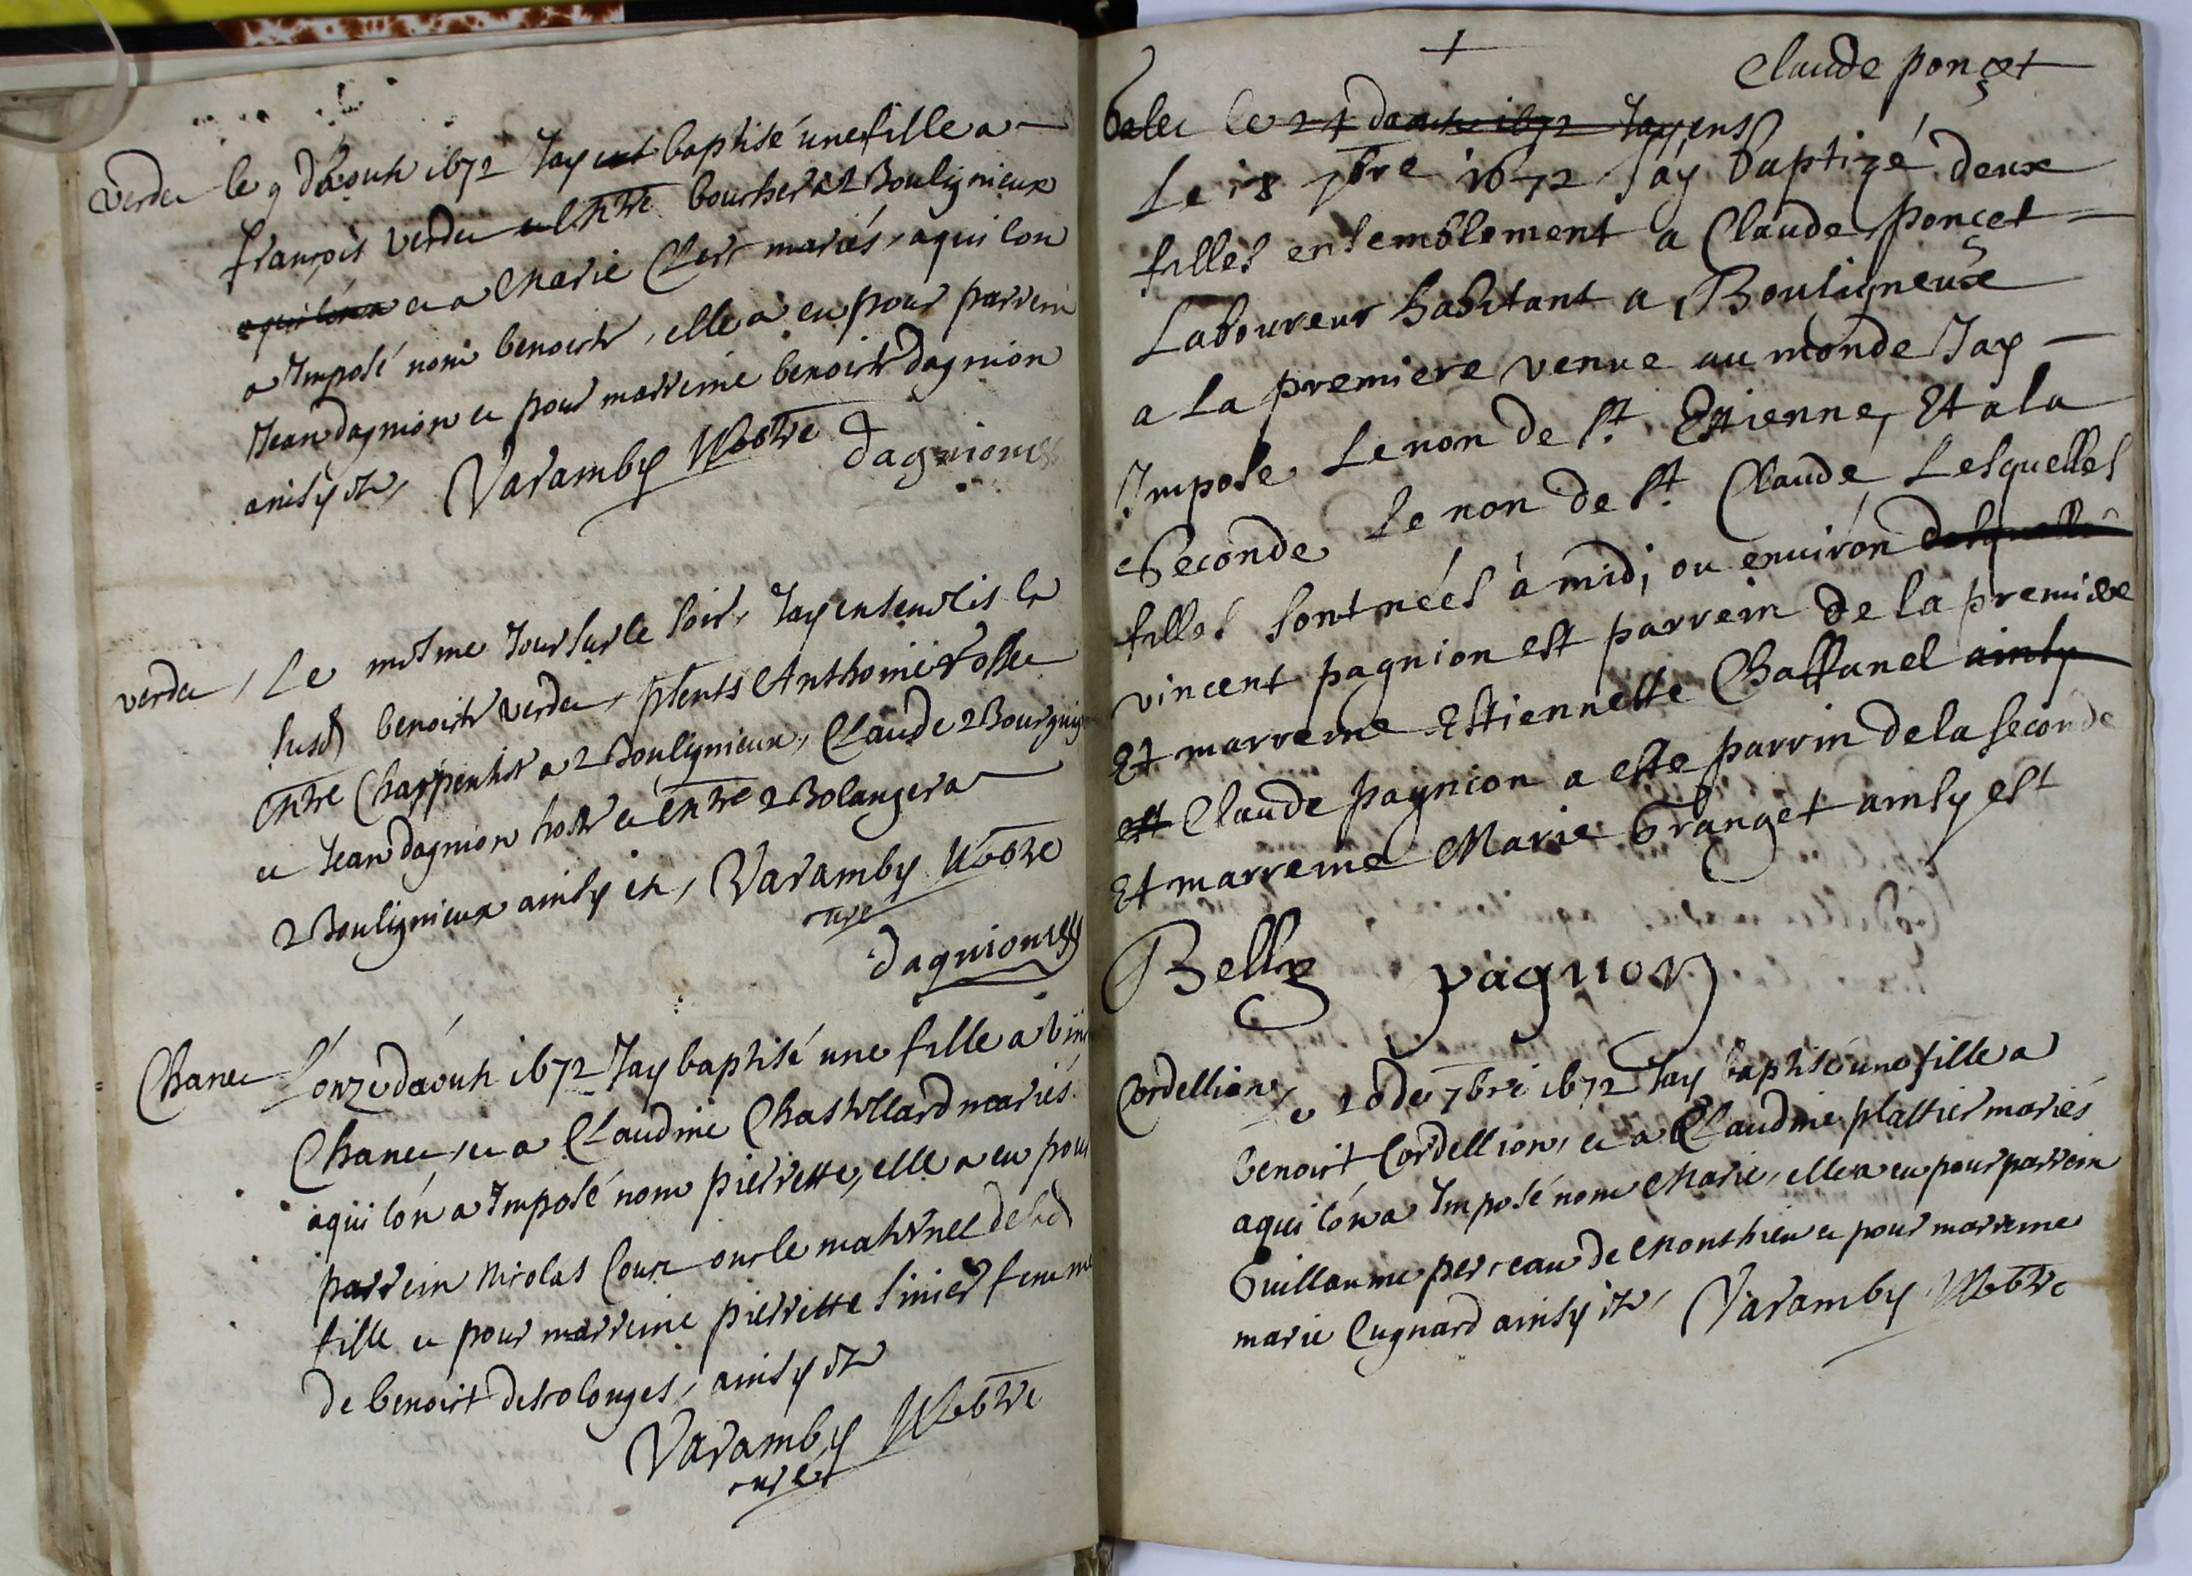 verdu le 9 d'aouh 1672 Jay baptisé une fille a
françois verdu boucher a Boulignieux
e a Marie Clerc mariés, a qui lon
a Imposé nom benoiste, elle a eu pour parrein
Jean dagnion e pour marreine benoiste dagnion
ainsy est, Varamby dagnion
verdu, Le mesme Jour sur le soir, Jay ensevelis la
susd benoiste verdu, psents Anthoine
Charpentier a Boulignieux, Claude
e Jean dagnion hoste e Bolanger a
Boulignieux ainsy est, Varamby
curé
dagnion
Chanel L'onze d'aouh 1672 Jay baptisé une fille a
Chanel, e a Claudine Chastellard mariés
a qui lon a Imposé nom pierrette, elle a eu pour
parrein Nicolas Cour oncle maternel de lad
fille e pour marreine pierrette Sinier femme
de benoist desolonges, ainsy est
Varamby
curé
+
Claude ponçet
le 24 d'aouh 1672 Jay ens
Le 18 7bre 1672 Jay baptizé deux
filles ensemblement a Claude Ponçet
Laboureur habitant a Bouligneux
a la premiere venue au monde Jay
Impose Le non de st Estienne, Et a la
Seconde Le non de st Claude, Lesquelles
filles sont nées à midi ou environ
vincent pagnion est parrein de la premiere
Et marreine Estiennette Chaffanel ainsy
est Claude pagnion a este parrin de la seconde
Et marreine Marie Granget ainsy est
Belly pagnon
Cordellion, Le 20 de 7bre 1672 Jay baptisé une fille a
benoist Cordellion, e a Claudine plattier mariés
a qui lon a Imposé nom Marie, elle a eu pour parrein
Guillaume perreau de Monthieu e pour marreine
marie Cugnard ainsy est, Varamby